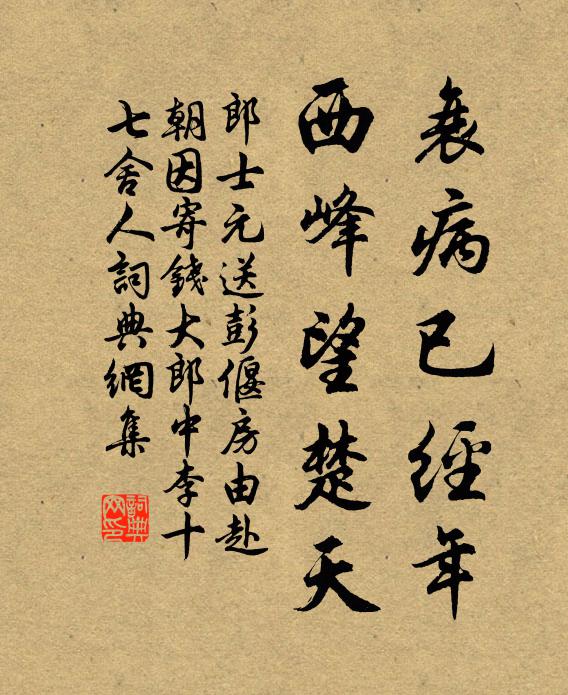 衰病已經年
西峰望楚天
郎士元送彭偃房由赴
朝因寄錢大郎中李十
七舍人詞典網集
詞典
网印